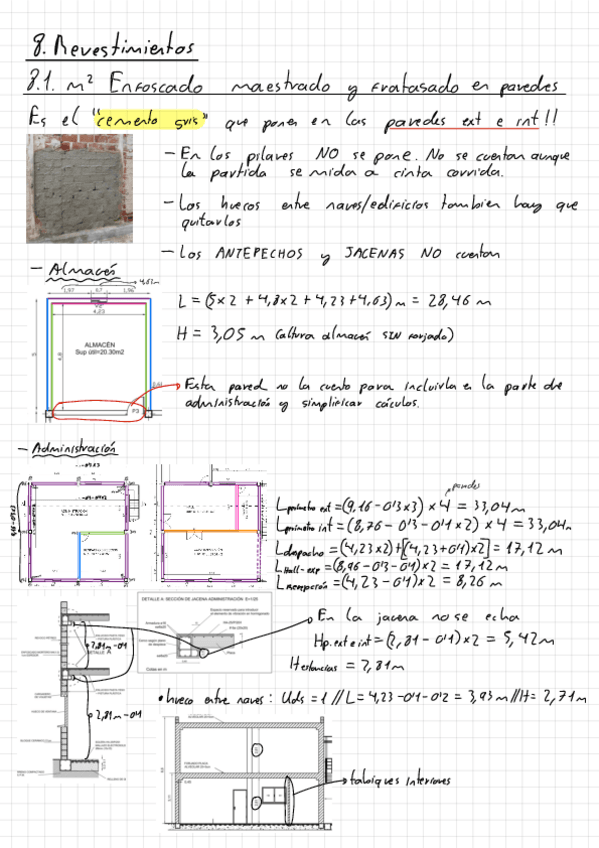 8. Revestimientos
8.1. m² Enfoscado maestrado y fratasado en paredes
Es el "cemento gris" que ponen en las paredes ext e int!!
- En los pilares NO se pone. No se cuentan aunque
la partida se mida a cinta corrida.
- Los huecos entre naves/edificios tambien hay que
quitarlos
- Los ANTEPECHOS y JACENAS NO cuentan
- Almacén
4,63m
1,57 0,7 1,96
4,23
5
4,8
ALMACÉN
Sup útil=20.30m2
P3
L = (5x2 + 4,8x2 + 4,23 + 4,63) m = 28,46 m
H = 3,05 m (altura almacén SIN forjado)
Esta pared no la cuento para incluirla en la parte de
administración y simplificar cáculos.
- Administración
paredes
L perimetro ext = (9,16 - 0'3 x 3) x 4 = 33,04m
L perimetro int = (8,76 - 0'3 - 0'1 x 2) x 4 = 33,04m
L despacho = (4,23x2)+[(4,23+0'1)x2] = 17,12 m
L Hall-exp = (8,96 - 0'3 - 0'1) x 2 = 17,12 m
L recepción = (4,23 - 0'1) x 2 = 8,26 m
DETALLE A: SECCIÓN DE JACENA ADMINISTRACIÓN E=1/20
Cotas en m
2,81m - 0'1
DETALLE A
2,81 m - 0'1
En la jacena no se echa
Hp. ext e int = (2,81 - 0'1) x 2 = 5,42m
H estancias = 2,81m
• hueco entre naves: Uds = 1 // L = 4,23 - 0'1 - 0'2 = 3,93 m // H = 2,71 m
tabiques interiores